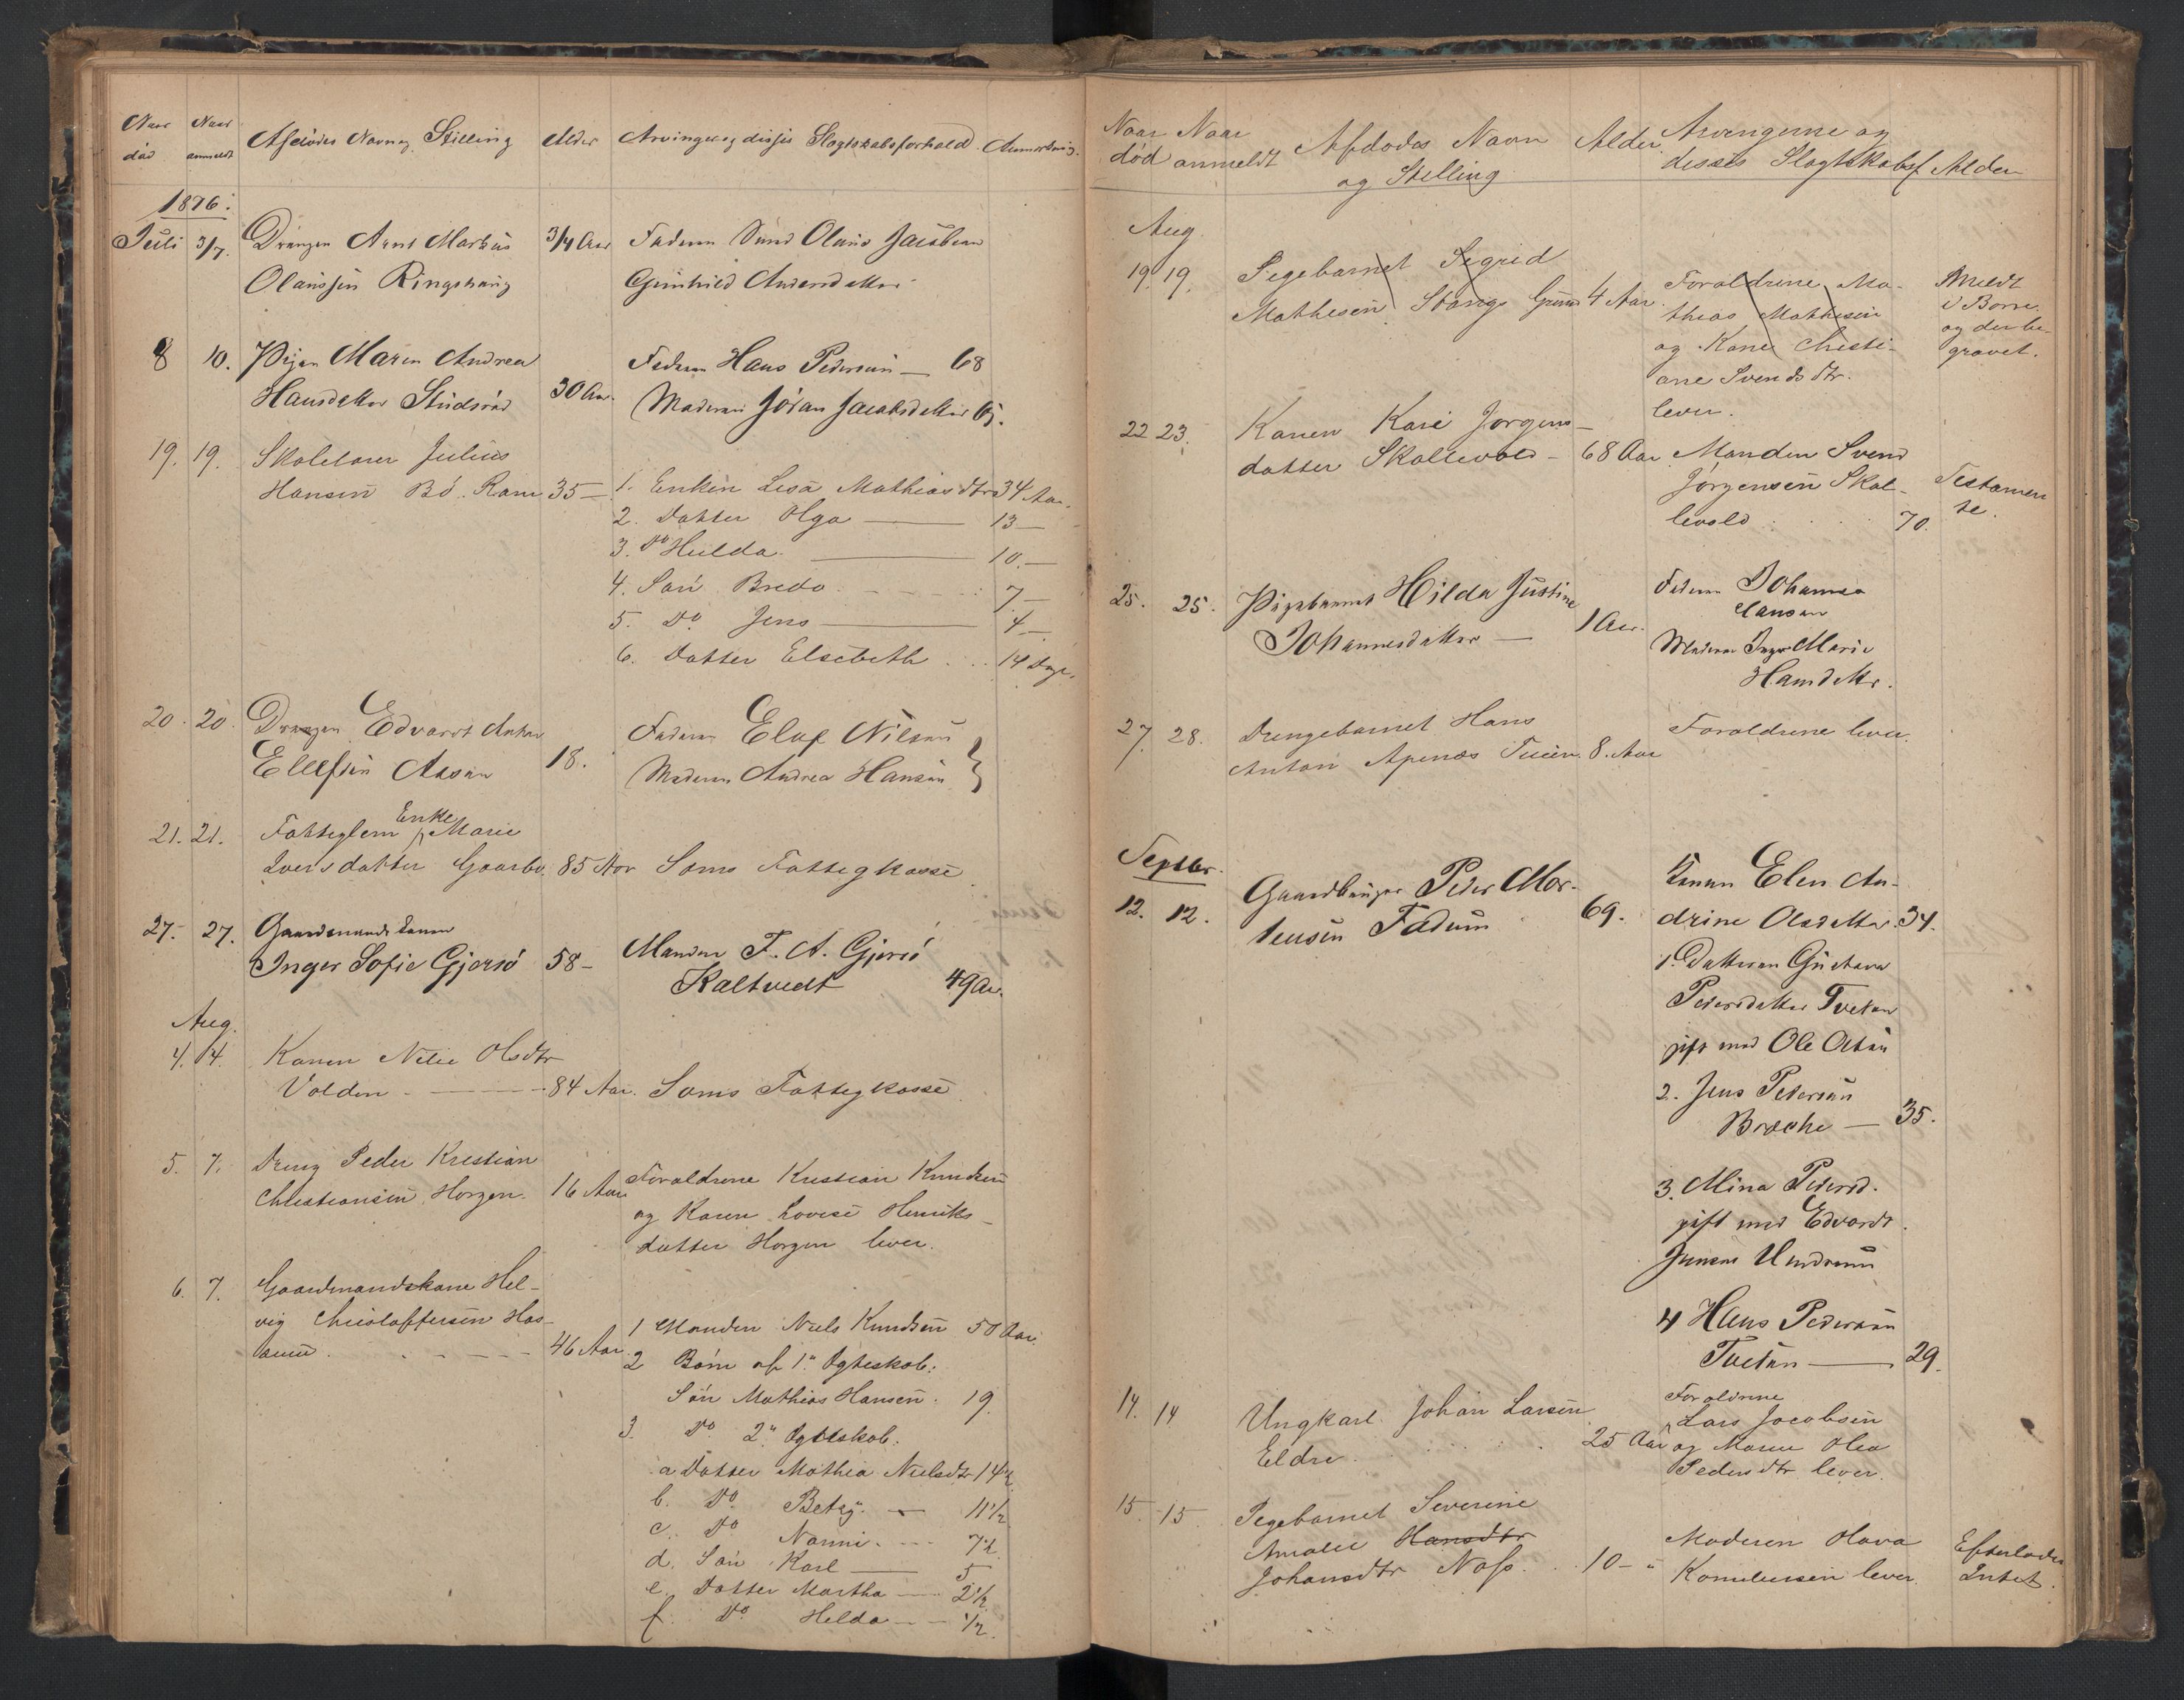 Naar død Naar anmeldt Afdødes Navn og Stilling Alder Arvinger og disses Slægtskabsforhold Anmerkning.
1876:
Juli 3/7. Drengen Arnt Markus 3/4 Aar Faderen Olaus Jacobsen
Olaussen Ringshaug Gunhild Andersdatter
8 10. Pigen Maren Andrea Faderen Hans Pedersen — 68
Hansdatter Studsrød 30 Aar. Moderen Jøran Jacobsdatter 65.
19. 19. Skolelærer Julius
Hansen Bö. Ram 35 — 1. Enken Lesa Mathiasdtr 34 Aar.
2. Datter Olga — 13 —
3. Do Hulda. — 10. —
4. Sön Bredo. 7. —
5. Do Jens — 4 —
6. Datter Elsebeth . . 14 Dage.
20. 20. Drengen Edvardt Anton Faderen Eluf Nilsen
Ellefsen Aasen 18. Moderen Andrea Hansen }
21. 21. Fattiglem Enke Marie
Iversdatter Gaarbo 85 Aar Sems Fattigkasse
27. 27. Gaardmands Konen
Inger Sofie Gjersö 58 — Manden F. A. Gjersö
Kaltvedt 49 Aar.
Aug.
4. 4. Konen Nelie Olsdtr
Volden. — 84 Aar. Sems Fattigkasse
5. 7. Dreng Peder Kristian
Christiansen Horgen. 16 Aar Foraldrene Kristian Knudsen
og Karen Lovise Henriks-
datter Horgen lever.
6. 7. Gaardmandskone Hel-
vig Christoffersen Has-
aunn. 46 Aar. 1 Manden Niels Knudsen 50 Aar.
2 Börn af 1" Ægteskab:
Sön Mathias Hansen. 19.
3. Do 2" Ægteskab:
a Datter Mathea Nielsdtr 14 1/2
b. Do Betzy. — 11 1/2
c. Do Nanni. — 7 1/2
d. Sön Karl — 5
e. Datter Martha — 2 1/2
f. Do Helda — 1/2.
Naar død Naar anmeldt Afdødes Navn og Stilling Alder Arvingerne og disses Slagtskabsf Alder
Aug
19. 19. Pigebarnet Sigrid
Mathesen Stange Grund 4 Aar. Foraldrene Ma-
theas Mathesen
og Kone Christi-
ane Svendsdtr.
lever.
Anmeldt
i Borre
og der be-
gravet.
22 23. Konen Kari Jorgens-
datter Skallevold — 68 Aar Manden Svend
Jörgensen Skal-
levold 70.
Testamen
te.
25. 25. Pigebarnet Hilda Justine
Johannesdatter — 1 Aar.
Faderen Johannes
Hansen
Moderen Inger Marie
Hansdattr.
27. 28. Drengebarnet Hans
Anton Apenæs Tuien. 8. Aar
Foraldrene lever.
Septbr.
12. 12. Gaardbruger Peder Mor-
tensen Fadum 69.
Konen Elen An-
drine Olsdatter 34.
1. Datteren Gustava
Pedersdatter Tvetan
gift med Ole Olsen
2. Jens Pedersen
Bræche — 35.
3. Mina Pedersd.
gift med Edvardt
Jensen Undrum
4 Hans Pedersen
Tveten — 29.
14. 14 Ungkarl Johan Larsen
Eldre. 25 Aar
Foraldrene
Lars Jacobsen
og Maren Olea
Pedersdtr lever.
15. 15. Pigebarnet Severine
Amalie Hansdtr
Johansdtr Nafs. 10 — "
Moderen Olava
Korneliusen lever.
Efterlader
Intet.